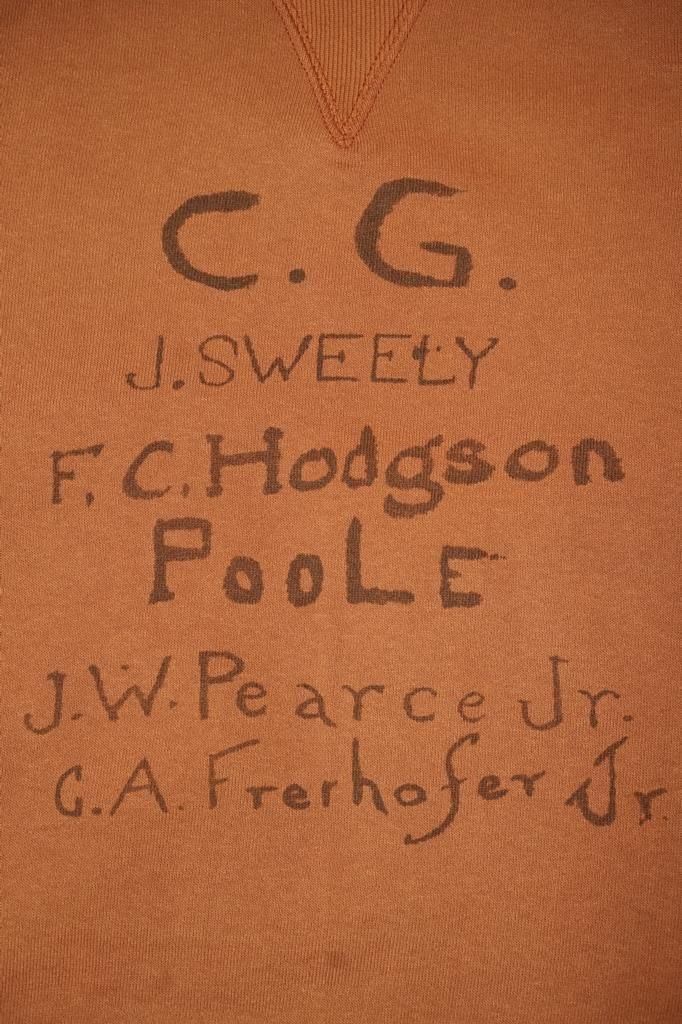 C. G.
J. SWEELY
F. C. Hodgson
PooLE
J. W. Pearce Jr.
C. A. Freihofer Jr.